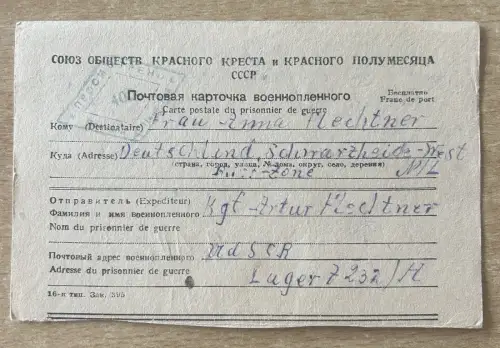 СОЮЗ ОБЩЕСТВ КРАСНОГО КРЕСТА и КРАСНОГО ПОЛУМЕСЯЦА
СССР
Почтовая карточка военнопленного
Бесплатно
Carte postale du prisonnier de guerre
Franc de port
Кому (Destinataire) Frau Anna Hechtner
Куда (Adresse) Deutschland Schwarzheide-West
(страна, город, улица, № дома, округ, село, деревня)
Отправитель (Expediteur)
Фамилия и имя военнопленного Kgf. Artur Hechtner
Nom du prisonnier de guerre
Почтовый адрес военнопленного UdSSR
Adresse du prisonnier de guerre Lager 7 232/
16-я тип. Зак. 595